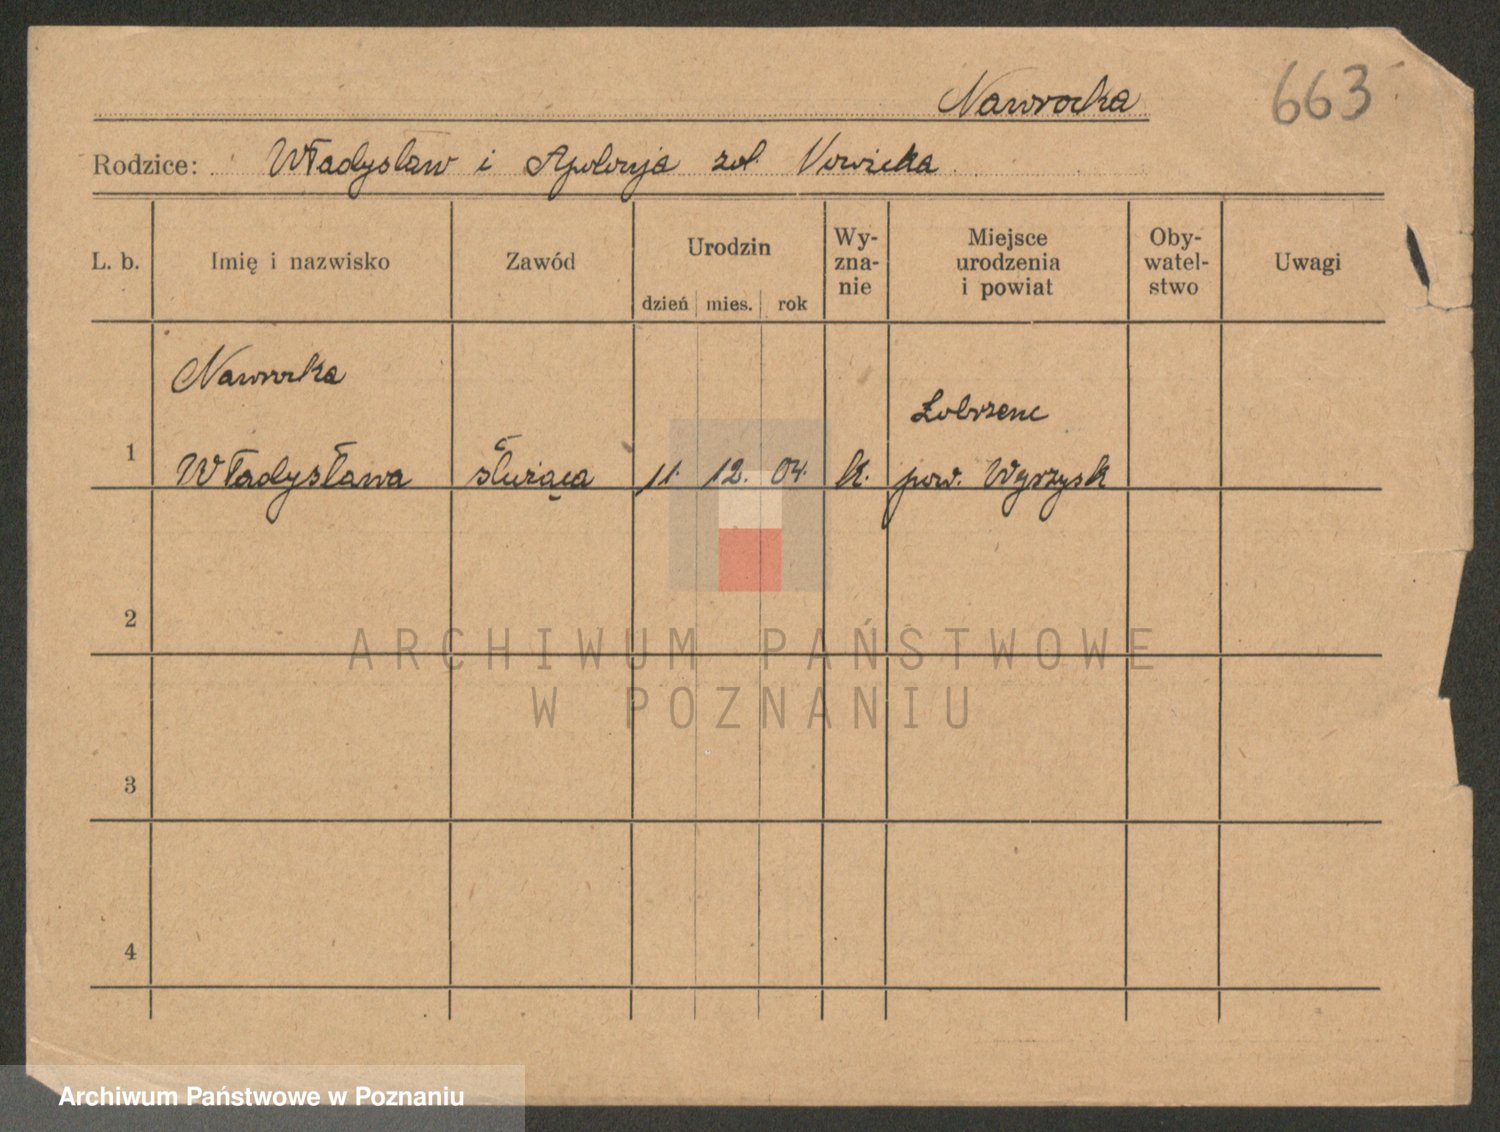 Nawrocka
663
Rodzice: Władysław i Apolonja
L. b.
Imię i nazwisko
Zawód
Urodzin
dzień mies. rok
Wy-
zna-
nie
Miejsce
urodzenia
i powiat
Oby-
watel-
stwo
Uwagi
Nawrocka
Łobżenc
1 Władysława służąca 11. 12. 04. k. pow. Wyrzysk
2
3
4
ARCHIWUM PAŃSTWOWE
W POZNANIU
Archiwum Państwowe w Poznaniu